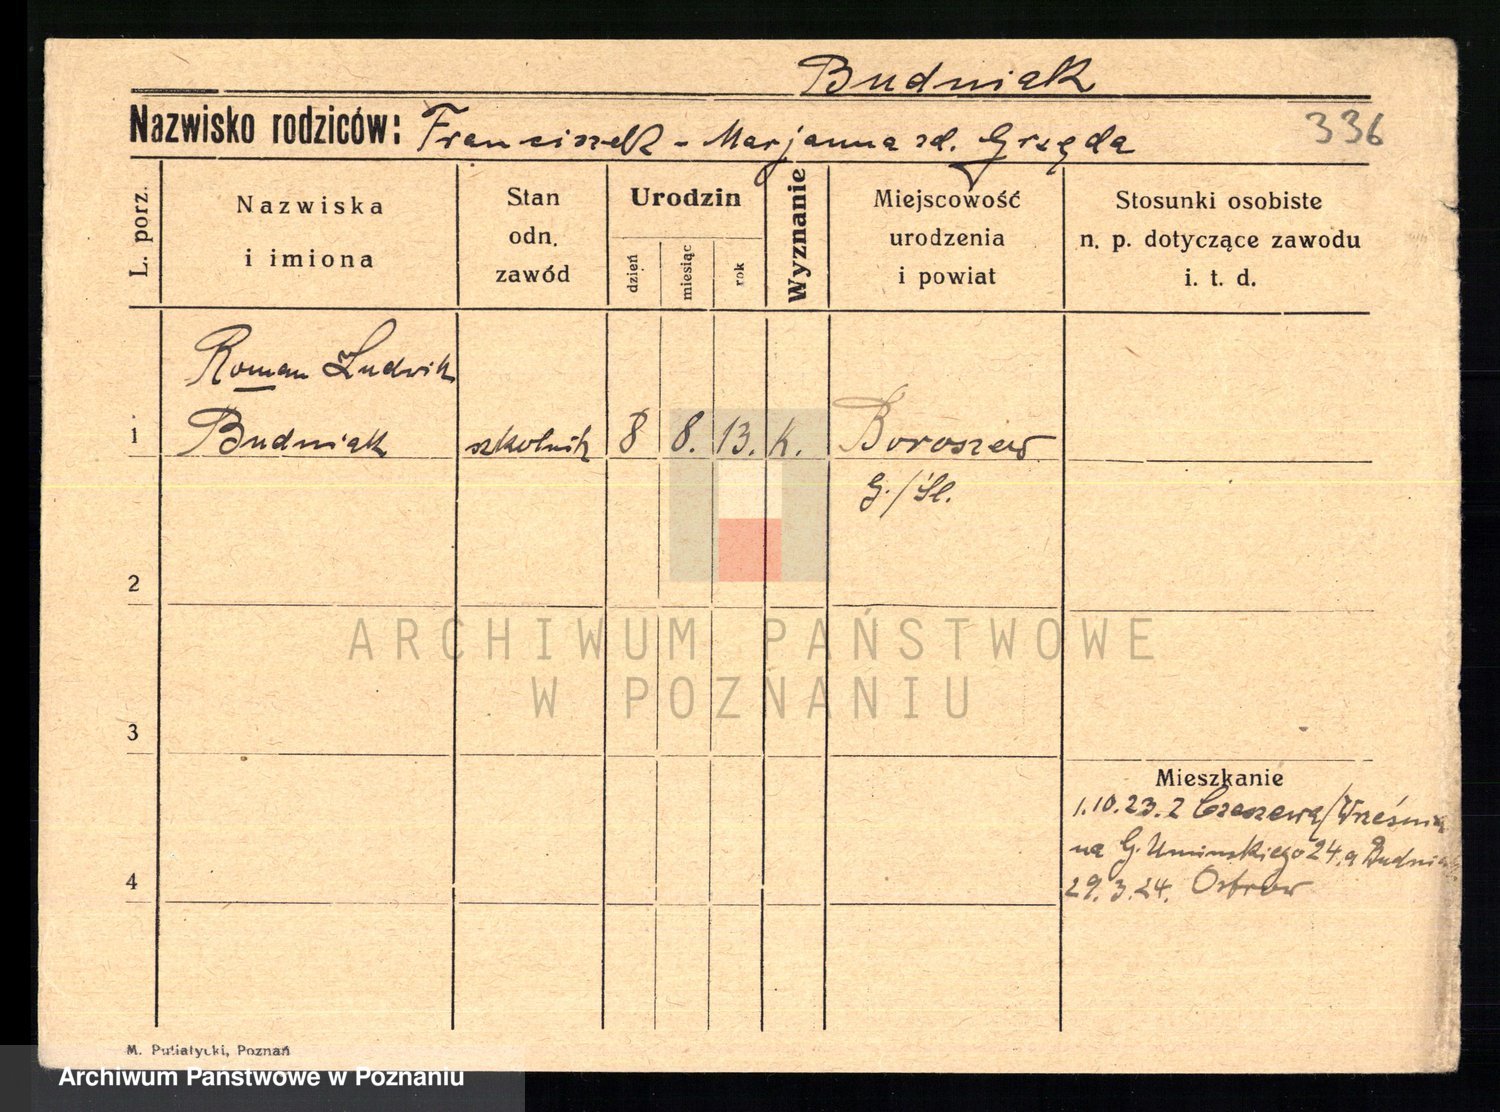 Budniak
Nazwisko rodziców: Franciszek - Marjanna zd. Grzęda
336
L. porz.
Nazwiska
i imiona
Stan
odn.
zawód
Urodzin
dzień
miesiąc
rok
Wyznanie
Miejscowość
urodzenia
i powiat
Stosunki osobiste
n. p. dotyczące zawodu
i. t. d.
Roman Ludwik
1 Budniak szkolnik 8 8. 13. k. Boroszew
G./Śl.
2
ARCHIWUM PAŃSTWOWE
W POZNANIU
3
Mieszkanie
1.10.23. z Czeszewa/Września
na G. Umińskiego 24. a Budnia
4
29.3.24. Ostrow
M. Putiatycki, Poznań
Archiwum Państwowe w Poznaniu